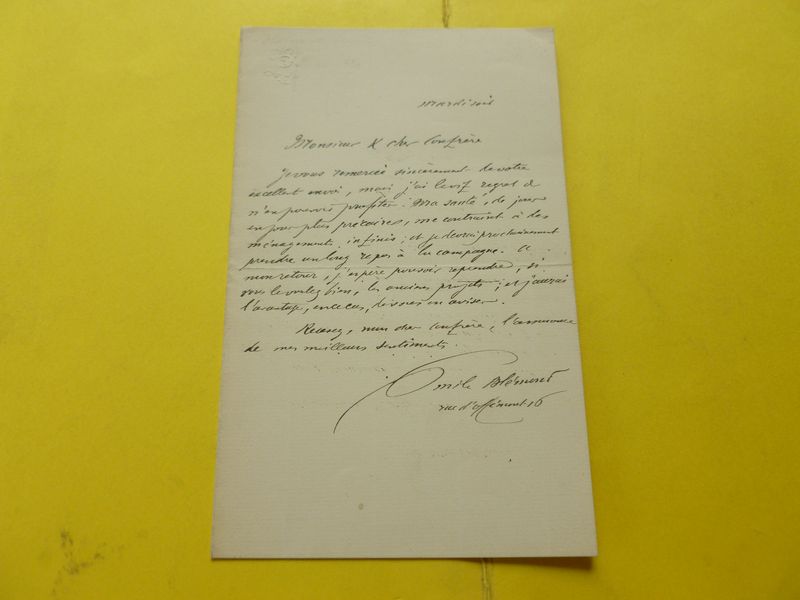 mardi soir
Monsieur & cher Confrère
Je vous remercie sincèrement de votre
excellent envoi, mais j'ai le vif regret de
n'en pouvoir profiter. Ma santé, de jour
en jour plus précaire, me contraint à des
ménagements infinis; et je devrai prochainement
prendre un long repos à la campagne. A
mon retour, j'espère pouvoir reprendre, si
vous le voulez bien, les anciens projets; et j'aurai
l'avantage, en ce cas, de vous en aviser.
Recevez, mon cher confrère, l'assurance
de mes meilleurs sentiments.
Emile Blémont
rue d'Offémont 16